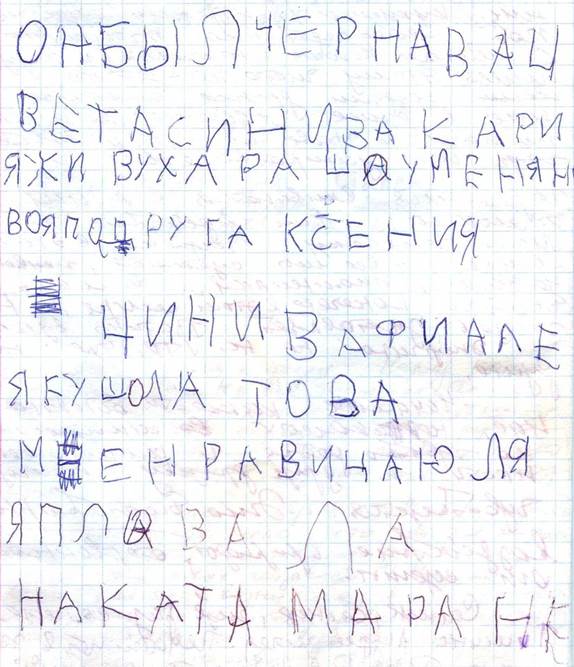 ОНБЫЛ ЧЕРНАВАЦ
ВЕТАСИНИВАКАРИ
ЯЖИ ВУХАРАШОУМЕНЯН
ВОЯПОДРУГА КСЁНИЯ
ЦИНИ ВАФИАЛЕ
ЯКУШОЛА ТОВА
МЕНРАВИЦАЮЛЯ
ЯПЛАВАЛА
НАКАТАМАРАНЕ